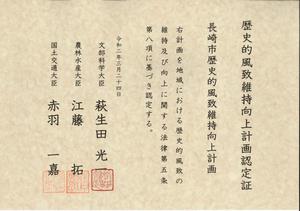 歴史的風致維持向上計画認定証
長崎市歴史的風致維持向上計画
右計画を地域における歴史的風致の
維持及び向上に関する法律第五条
第八項に基づき認定する。
令和二年三月二十四日
文部科学大臣 萩生田 光一
農林水産大臣 江藤 拓
国土交通大臣 赤羽 一嘉